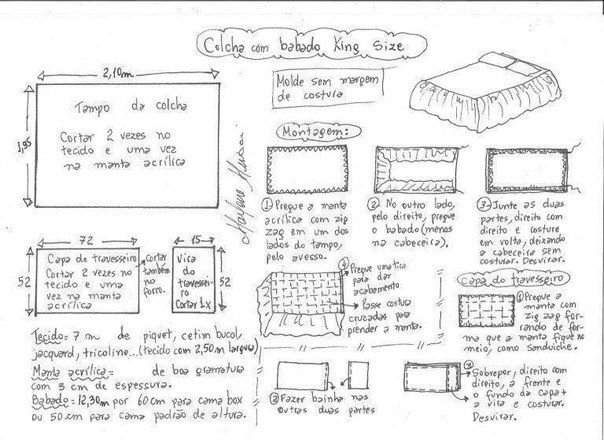 Colcha com babado King Size
Molde sem margem
de costura
2,10m
1,95
Tampo da colcha
Cortar 2 vezes no
tecido e uma vez
na manta acrílica
Montagem:
① Pregue a manta
acrílica com zig
zag em um dos
lados do tampo,
pelo avesso.
② No outro lado,
pelo direito, pregue
o babado (menos
na cabeceira).
③ Junte as duas
partes, direito com
direito e costure
em volta, deixando
a cabeceira sem
costurar. Desvirar.
72
52
Capa do travesseiro
Cortar 2 vezes no
tecido e uma
vez na manta
acrílica
Cortar
também
no
forro.
15
Vira
do
travessei-
ro
Cortar 1x
52
④ Pregue uma tira
para dar
acabamento
Passe costura
cruzadas para
prender a manta.
Capa do travesseiro
① Pregue a
manta com
zig zag for-
rando de for-
ma que a manta fique no
meio, como sanduiche.
② Fazer bainha nas
outras duas partes
③ Sobrepor, direito com
direito, a frente e
o fundo da capa+
a vira e costurar.
Desvirar.
Tecido= 7 m de piquet, cetim bucol,
jacquard, tricoline...(tecido com 2,50m largura)
Manta acrílica= de boa gramatura
com 3 cm de espessura.
Babado= 12,30m por 60cm para cama box
ou 50cm para cama padrão de altura.